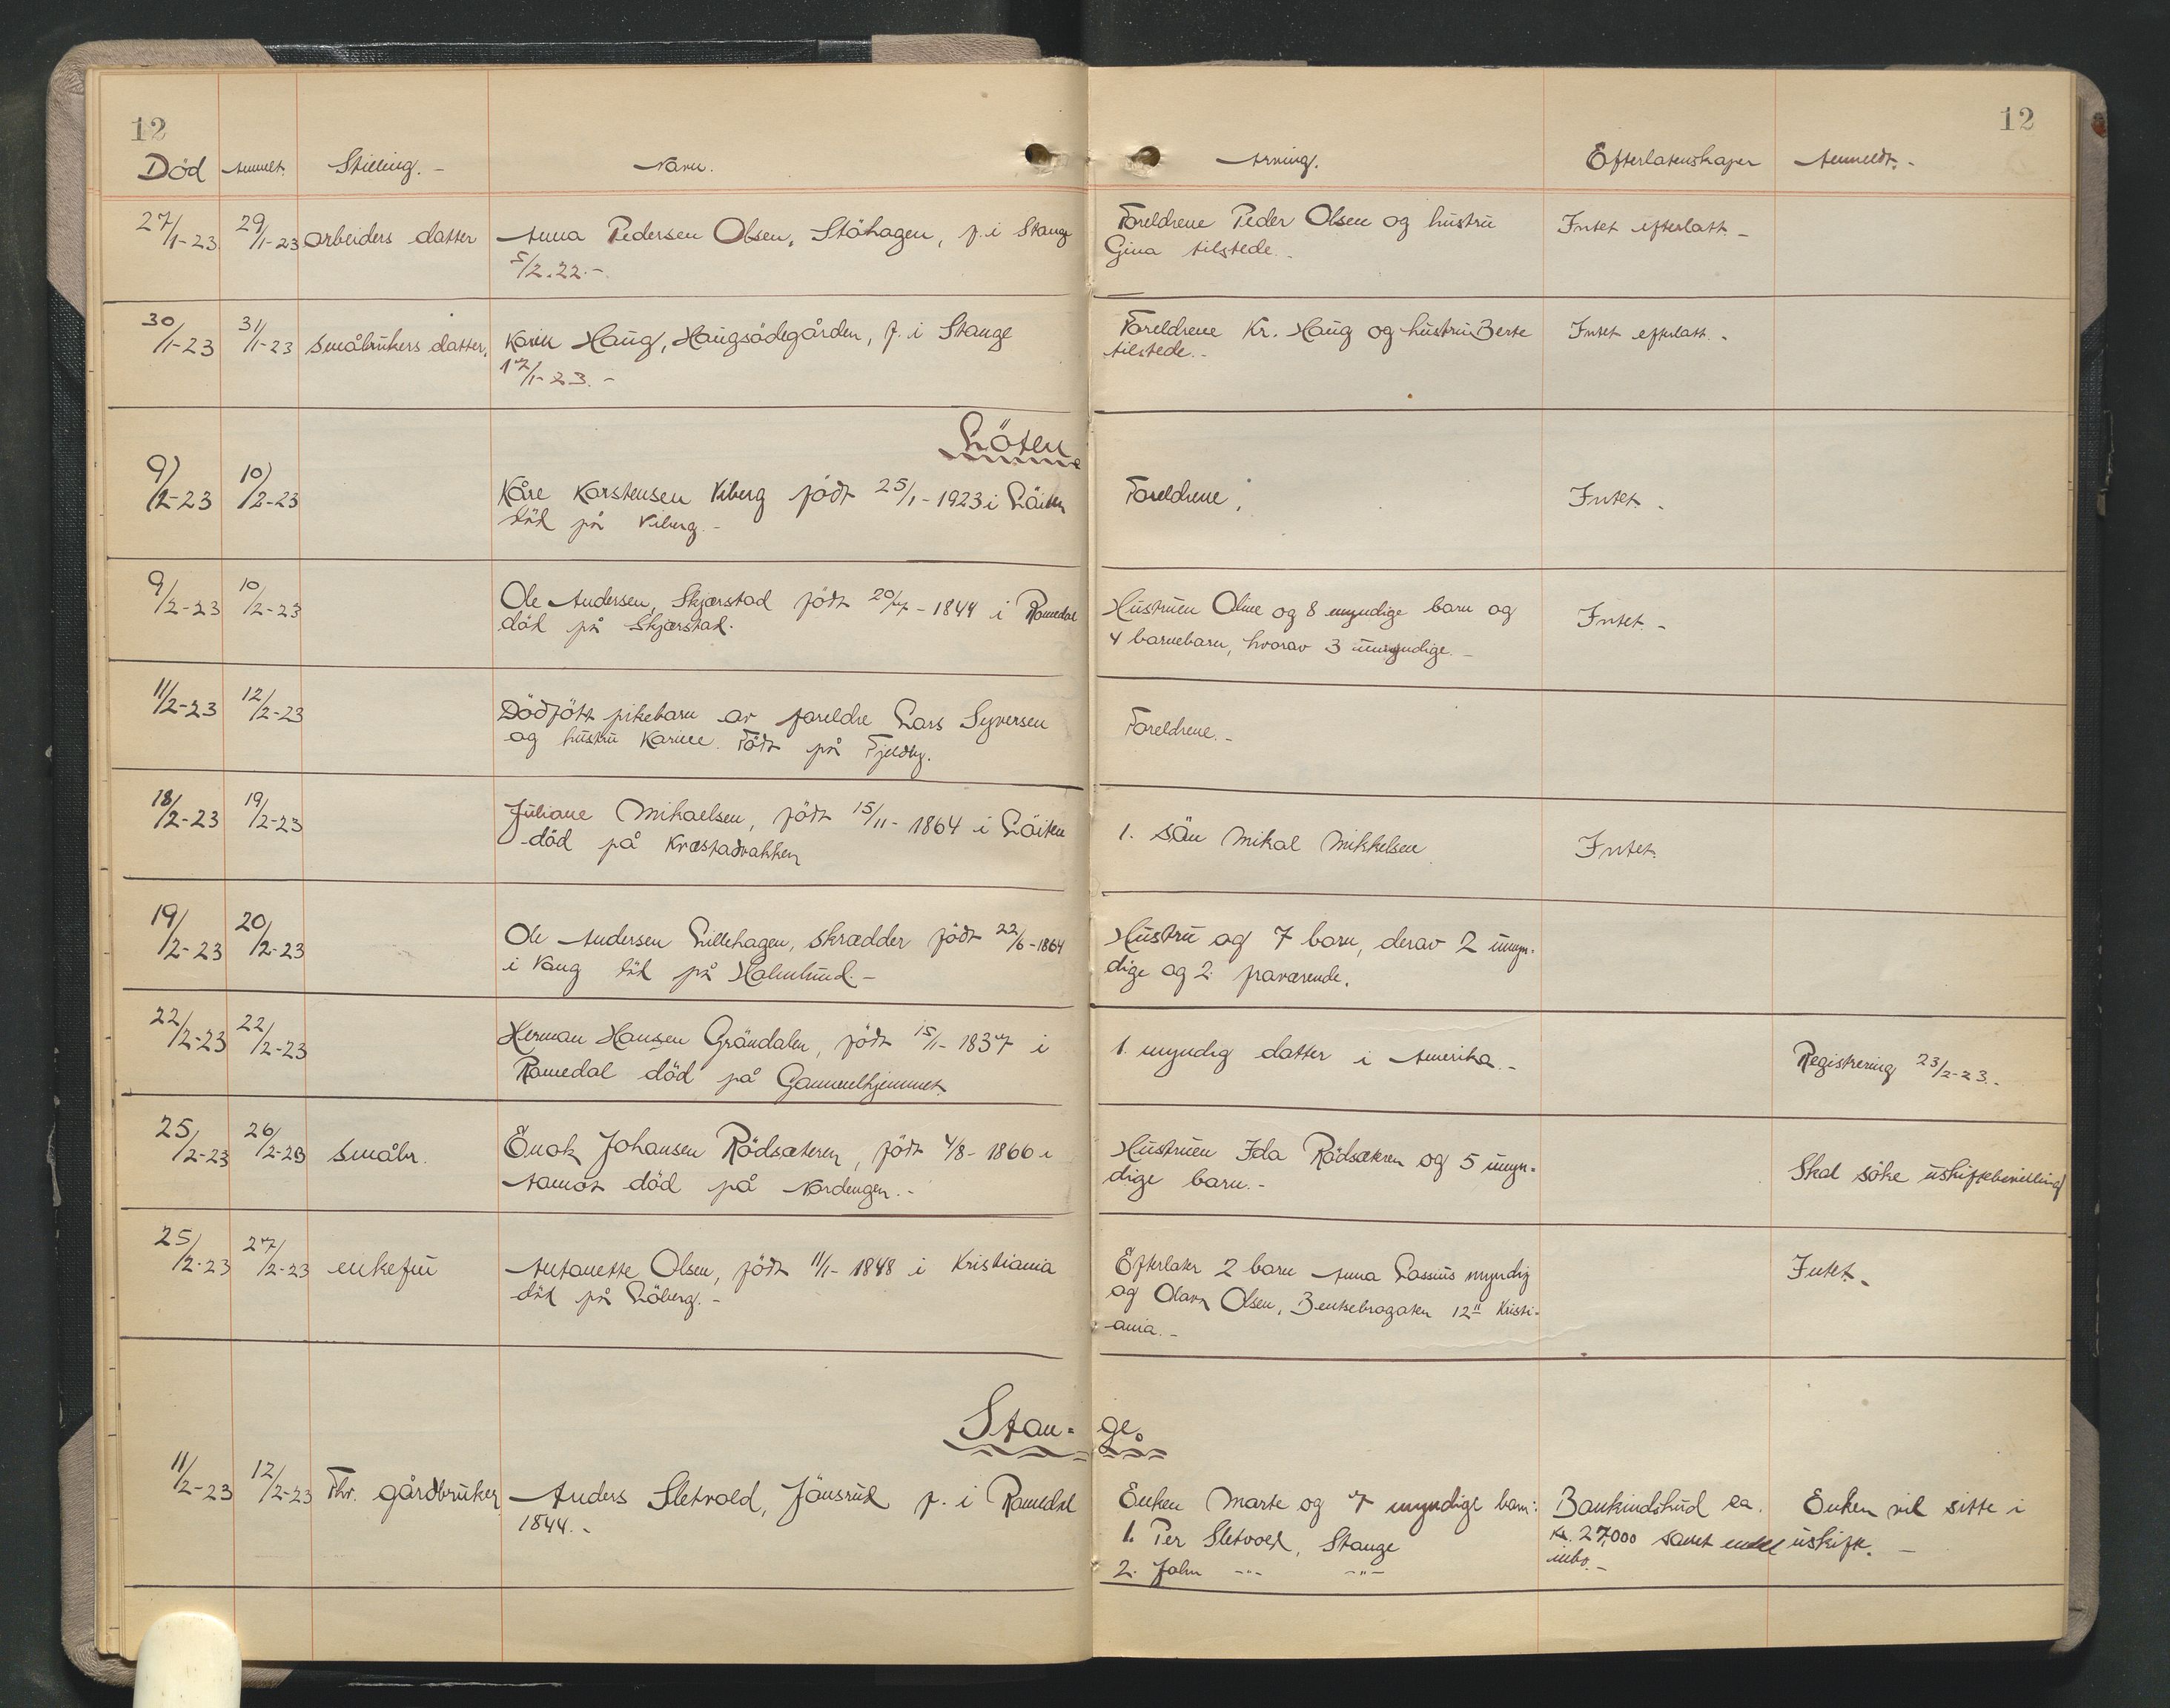 12
12
Död Anmelt. Stilling. - Navn. Arving. Efterlatenskaper Anmeldt. -
27/1-23 29/1-23 arbeiders datter Anna Pedersen Olsen, Stöhagen, f. i Stange Foreldrene Peder Olsen og hustru Intet efterlatt. -
5/2.22. - Gina tilstede. -
30/1-23 31/1-23 småbrukers datter. Karin Haug, Haugsödegården, f. i Stange Foreldrene Kr. Haug og hustru Berte Intet efterlatt. -
17/1-23. - tilstede. -
Löten
9/2-23 10/2-23 Kåre Karstensen Viberg födt 25/1-1923 i Löiten Foreldrene. Intet. -
död på Viberg. -
9/2-23 10/2-23 Ole Andersen, Skjærstad födt 20/7-1844 i Romedal Hustruen Oline og 8 myndige barn og Intet. -
död på Skjærstad. 4 barnebarn, hvorav 3 umyndige. -
11/2-23 12/2-23 Dödfött pikebarn av foreldre Lars Syversen Foreldrene. -
og hustru Karine. Födt på Fjeldby.
18/2-23 19/2-23 Juliane Mikaelsen, födt 15/11-1864 i Löiten 1. sön Mikal Mikkelsen Intet.
död på Kvæstadbakken
19/2-23 20/2-23 Ole Andersen Lillehagen, skrædder födt 22/6-1864 Hustru og 7 barn, derav 2 umyn-
i Vang död på Holmlund. - dige og 2 fraværende.
22/2-23 22/2-23 Herman Hansen Gröndalen, födt 15/1-1837 i 1. myndig datter i Amerika. - Registrering 23/2-23. -
Romedal död på Gammelhjemmet.
25/2-23 26/2-23 småbr. Enok Johansen Rödsæteren, födt 4/8-1866 i Hustruen Ida Rödsæteren og 5 umyn- Skal söke uskiftebevilling
Aamot död på Nordengen. - dige barn. -
25/2-23 27/2-23 enkefru Antonette Olsen, födt 11/1-1848 i Kristiania Efterlater 2 barn Anna Lassius myndig Intet. -
död på Löberg. - og Olava Olsen, Bentsebrogaten 12 II Kristi-
ania. -
Stan- ge.
11/2-23 12/2-23 Fhv. gårdbruker Anders Sletvold, Jönsrud f. i Romedal Enken Marte og 7 myndige barn: Bankindskud ca. Enken vil sitte i
1844. - 1. Per Sletvold, Stange kr. 27,000 samt endel uskifte. -
2. John -"- -"- inbo. -